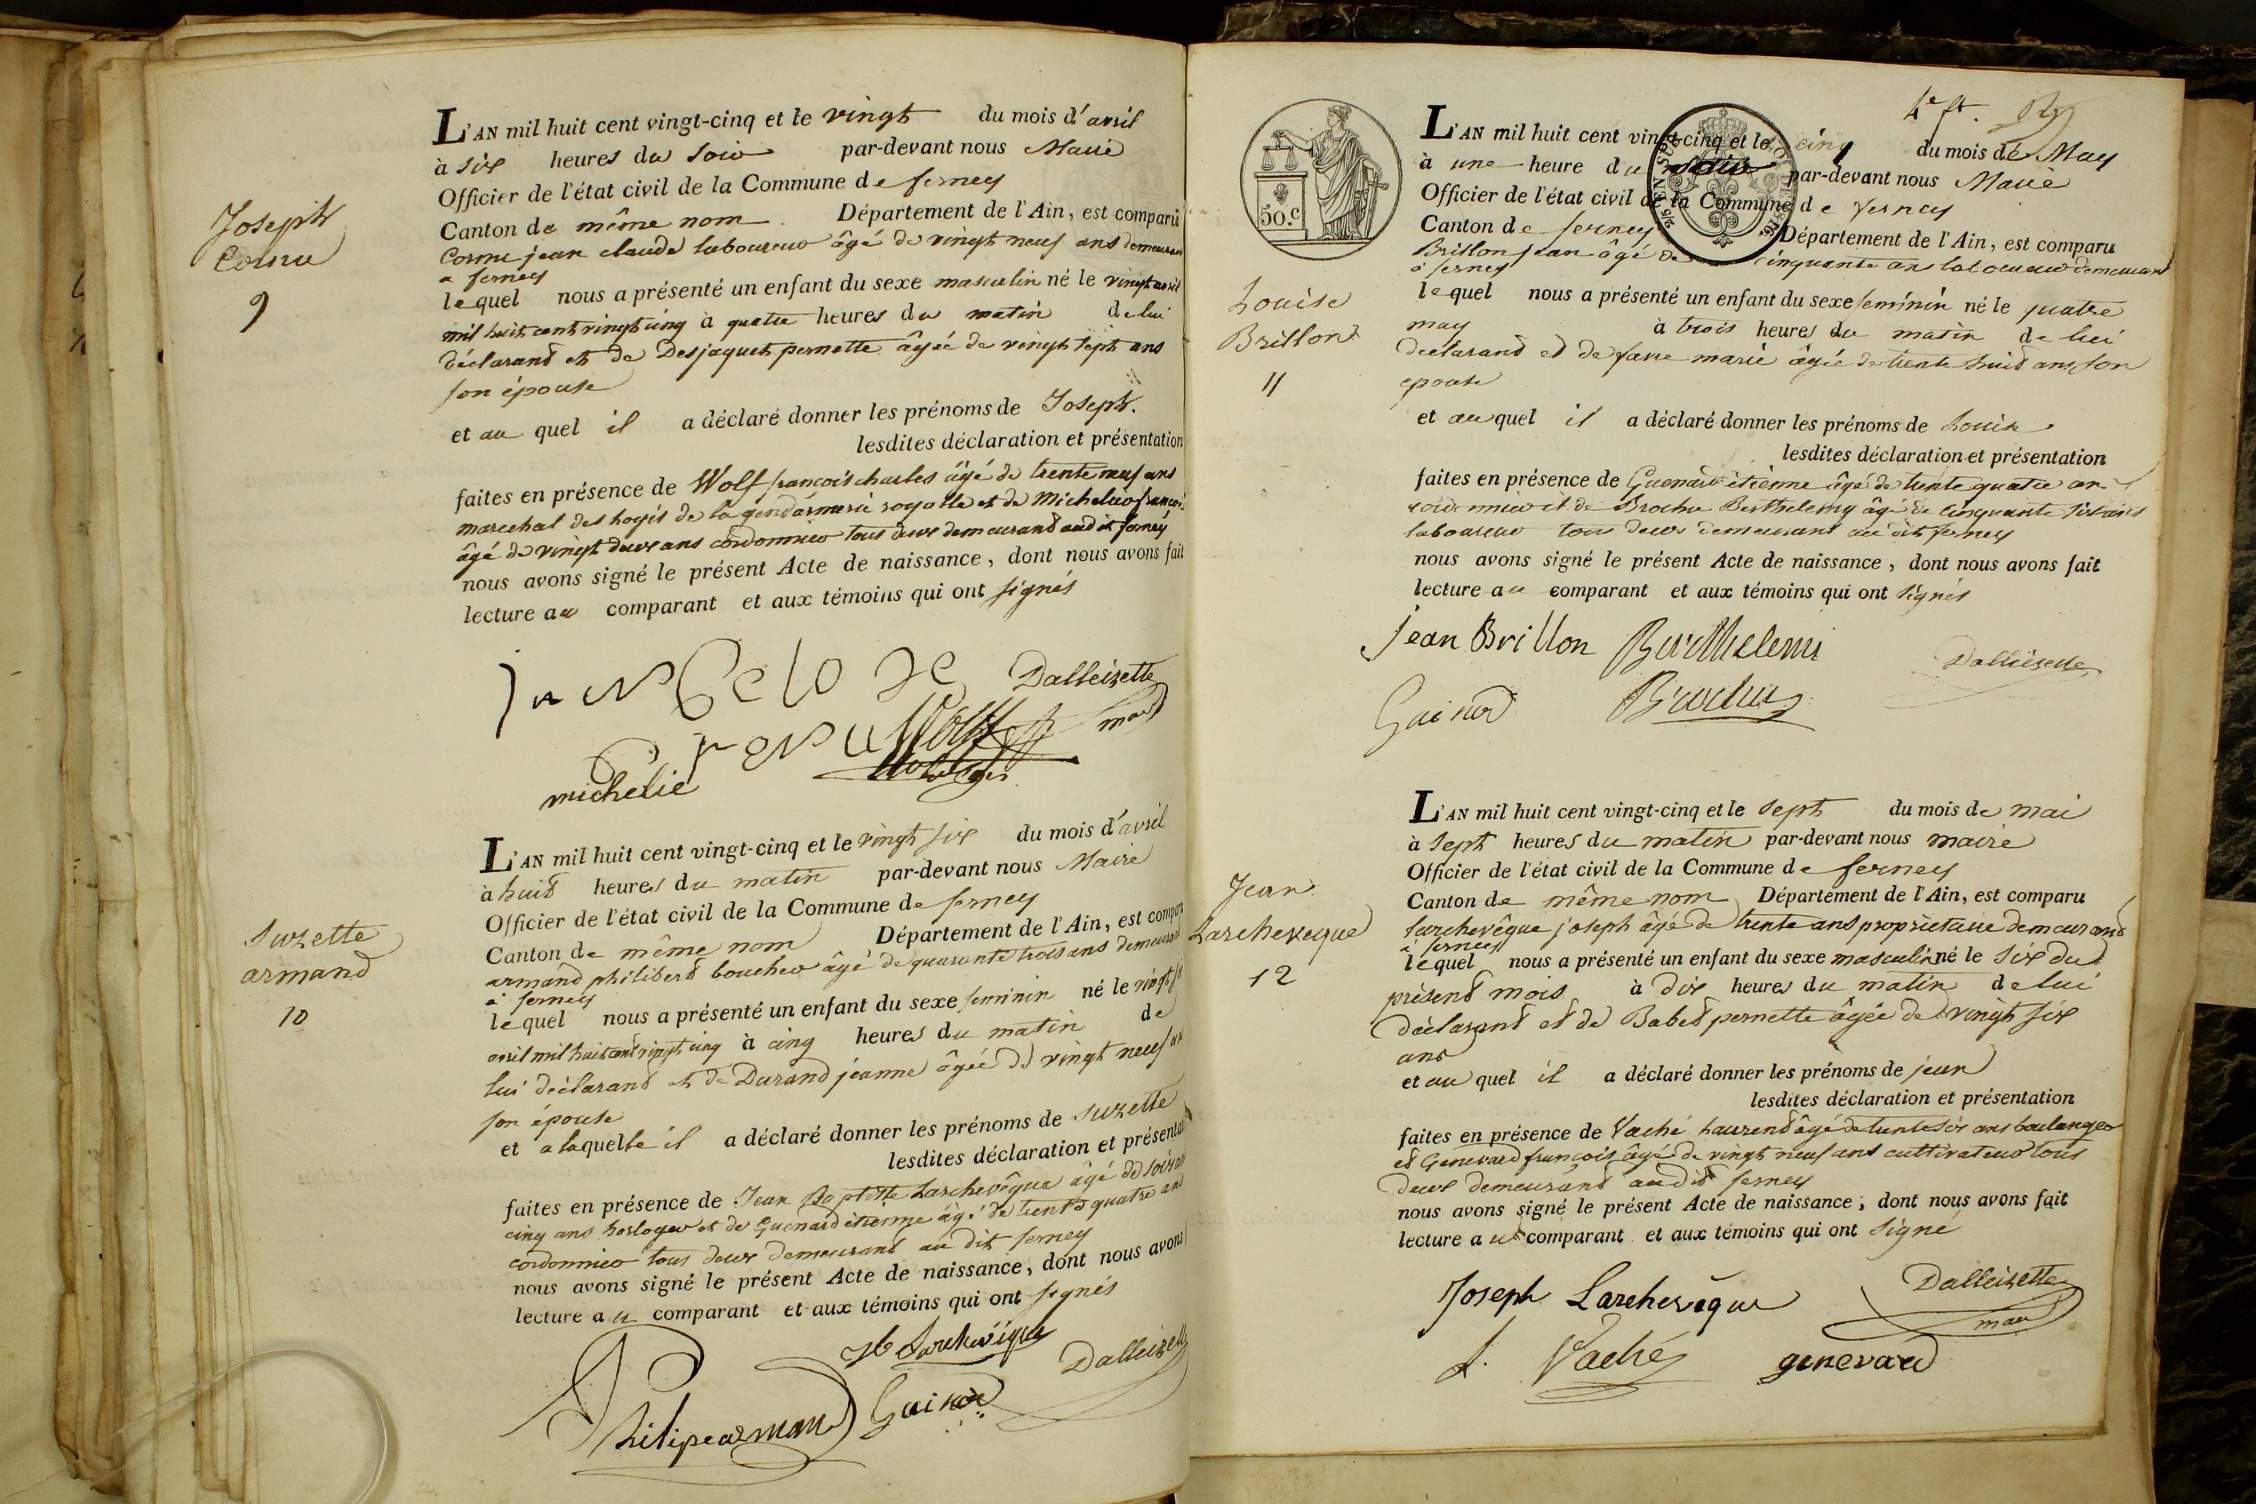 Joseph
Cornu
9
L'AN mil huit cent vingt-cinq et le vingt du mois d'avril
à six heures du soir par-devant nous Maire
Officier de l'état civil de la Commune de ferney
Canton de même nom Département de l'Ain, est comparu
Cornu jean claude laboureur âgé de vingt neuf ans demeurant
a ferney
lequel nous a présenté un enfant du sexe masculin né le vingt avril
mil huit cent vingt cinq à quatre heures du matin de lui
déclarant et de Desjaquet pernette âgée de vingt sept ans
son épouse
et au quel il a déclaré donner les prénoms de Joseph.
lesdites déclaration et présentation
faites en présence de Wolf françois charles âgé de trente neuf ans
marechal des logis de la gendarmerie royalle et de Michelier françois
âgé de vingt deux ans cordonnier tous deux demeurant audit ferney
nous avons signé le présent Acte de naissance, dont nous avons fait
lecture au comparant et aux témoins qui ont signés
Dalleizette
Wolff
maire
michelie
Suzette
armand
10
L'AN mil huit cent vingt-cinq et le vingt six du mois d'avril
à huit heures du matin par-devant nous Maire
Officier de l'état civil de la Commune de ferney
Canton de même nom Département de l'Ain, est comparu
armand philibert boucher âgé de quarante trois ans demeurant
a ferney
lequel nous a présenté un enfant du sexe feminin né le vingt six
avril mil huit cent vingt cinq à cinq heures du matin de
lui déclarant et de Durand jeanne âgée de vingt neuf ans
son épouse
et a laquelle il a déclaré donner les prénoms de suzette
lesdites déclaration et présentation
faites en présence de Jean Baptiste Larchevêque âgé de soixante
cinq ans horloger et de Guenard étienne âgé de trente quatre ans
cordonnier tous deux demeurant au dit ferney
nous avons signé le présent Acte de naissance, dont nous avons
lecture au comparant et aux témoins qui ont signés
Larchevêque
Dalleizette
Philipe armand Gainard
50.c
L'AN mil huit cent vingt-cinq et le cinq du mois de May
à une heure du soir par-devant nous Maire
Officier de l'état civil de la Commune de ferney
Canton de ferney Département de l'Ain, est comparu
Brillon jean âgé de cinquante ans laboureur demeurant
à ferney
lequel nous a présenté un enfant du sexe feminin né le quatre
may à trois heures du matin de lui
déclarant et de favre marie âgée de trente huit ans son
epouse
et au quel il a déclaré donner les prénoms de Louise
lesdites déclaration et présentation
faites en présence de Guenard étienne âgé de trente quatre ans
cordonnier et de Brochu Berthelemy âgé de cinquante six ans
laboureur tous deux demeurant au dit ferney
nous avons signé le présent Acte de naissance, dont nous avons fait
lecture au comparant et aux témoins qui ont signés
Louise
Brillon
11
jean Brillon Berthelemi
Dalleizette
Gainard Brochu
Jean
Larcheveque
12
L'AN mil huit cent vingt-cinq et le sept du mois de mai
à sept heures du matin par-devant nous maire
Officier de l'état civil de la Commune de ferney
Canton de même nom Département de l'Ain, est comparu
Larchevêque joseph âgé de trente ans proprietaire demeurant
à ferney
lequel nous a présenté un enfant du sexe masculin né le six du
présent mois à dix heures du matin de lui
déclarant et de Babet pernette âgée de vingt six
ans
et au quel il a déclaré donner les prénoms de jean
lesdites déclaration et présentation
faites en présence de Vaché Laurend âgé de trente six ans boulanger
et Genevard françois âgé de vingt neuf ans cultivateur tous
deux demeurant audit ferney
nous avons signé le présent Acte de naissance, dont nous avons fait
lecture au comparant et aux témoins qui ont signé
Joseph Larchevêque
Dalleizette
maire
L. Vaché genevard